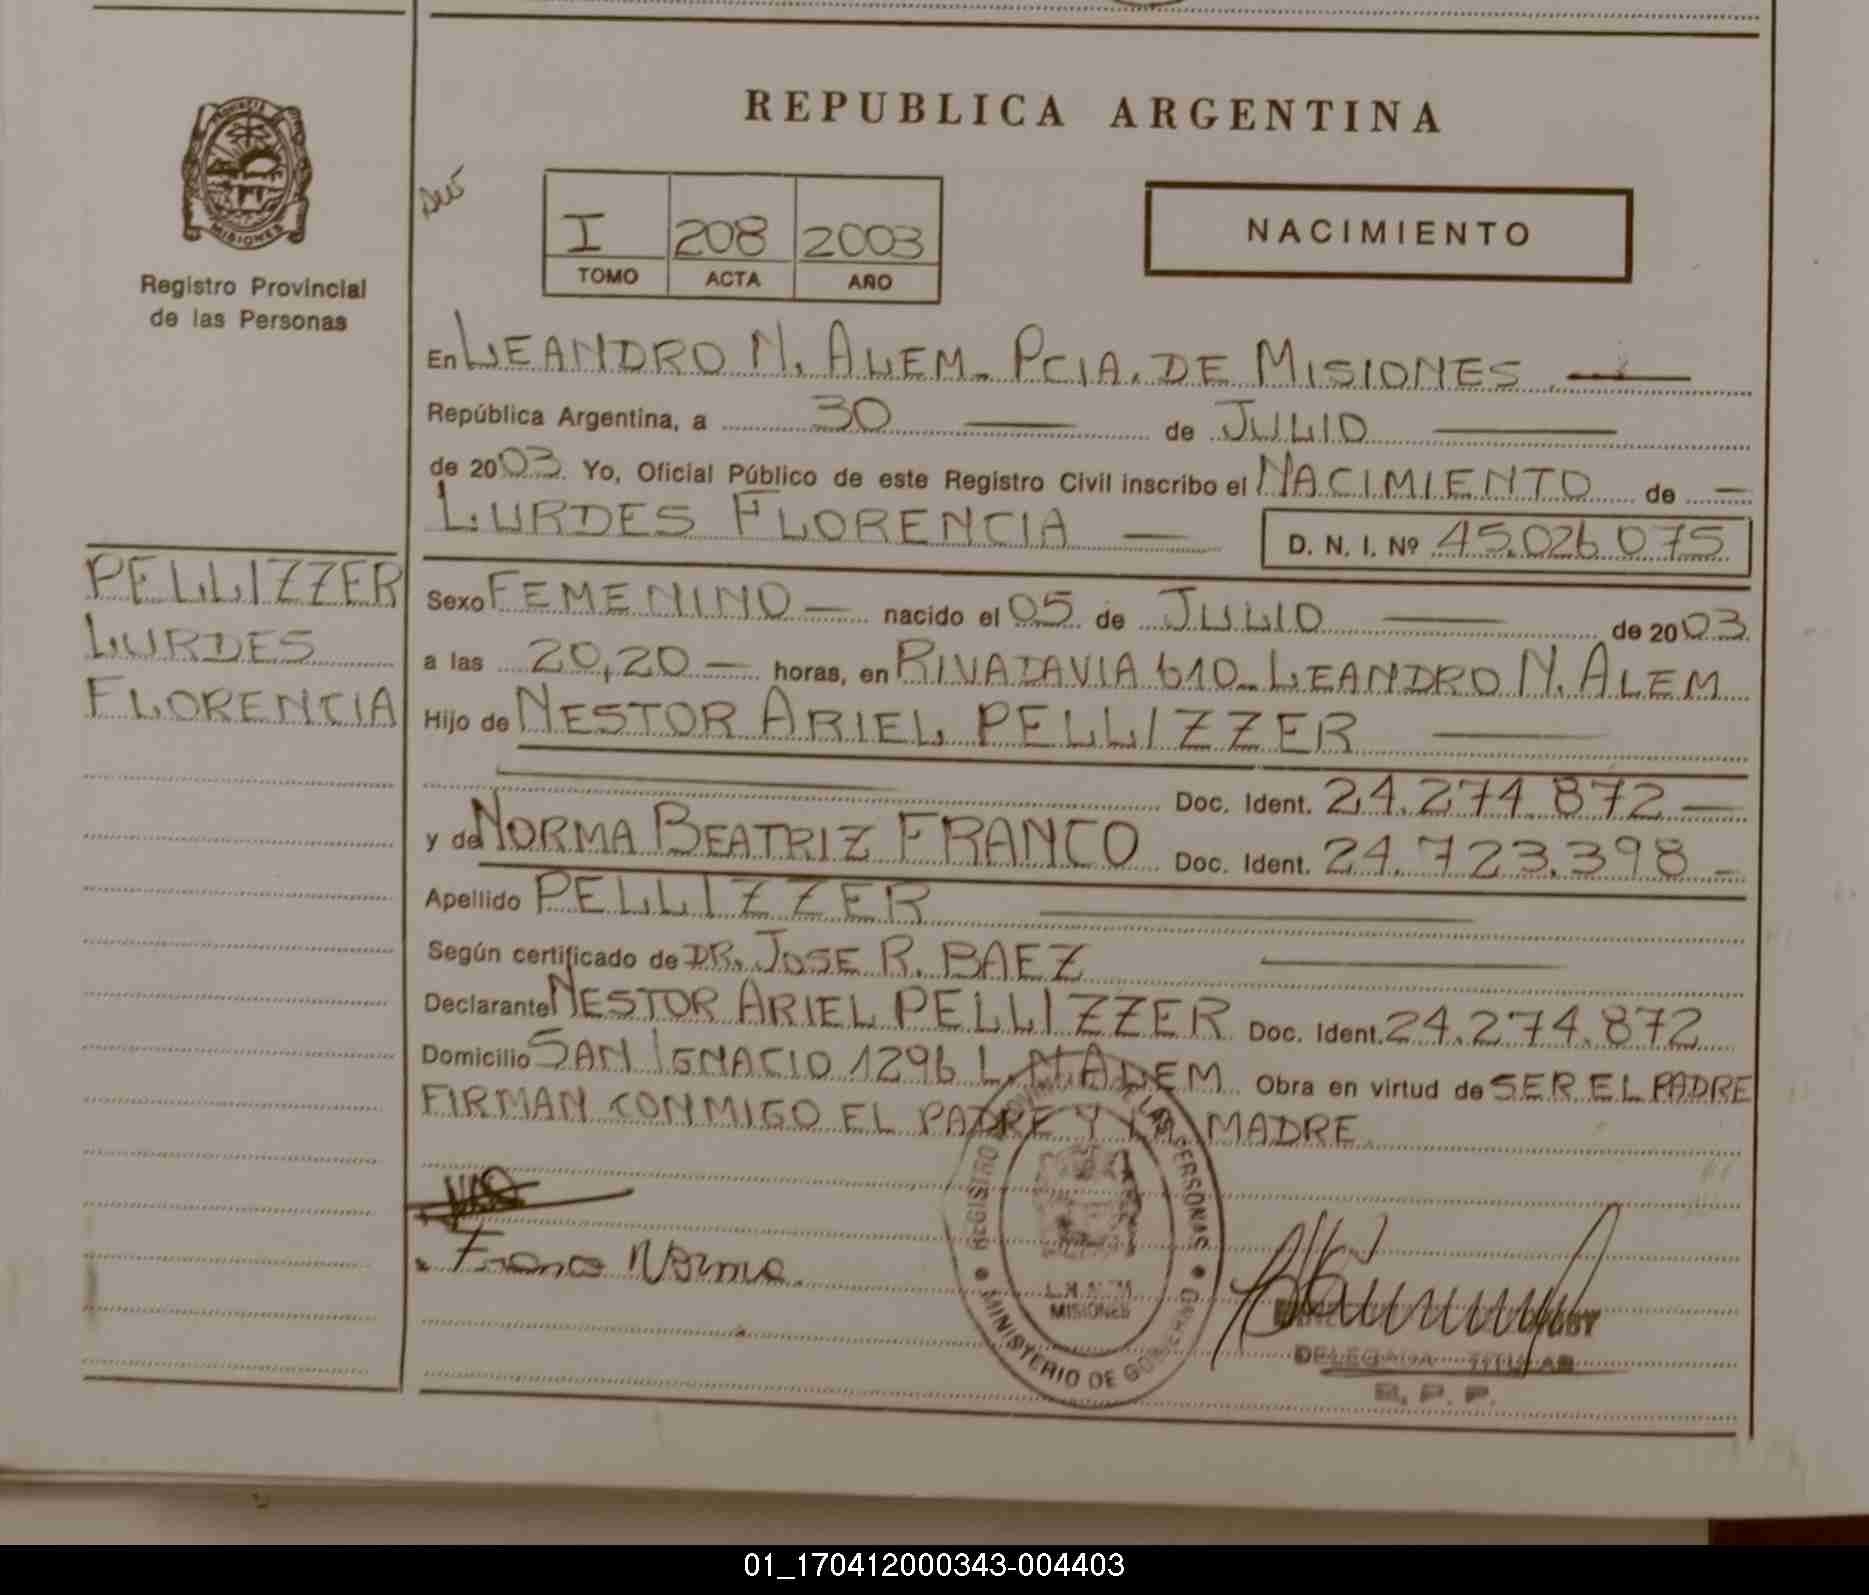 REPUBLICA ARGENTINA
MISIONES
Registro Provincial
de las Personas
I 208 2003
TOMO ACTA AÑO
NACIMIENTO
En LEANDRO N. ALEM - PCIA. DE MISIONES
República Argentina, a 30 de JULIO
de 2003. Yo, Oficial Público de este Registro Civil inscribo el NACIMIENTO de
LURDES FLORENCIA
D. N. I. Nº 45.026.075
PELLIZZER
LURDES
FLORENCIA
Sexo FEMENINO nacido el 05 de JULIO de 2003
a las 20,20 horas, en RIVADAVIA 610 - LEANDRO N. ALEM
Hijo de NESTOR ARIEL PELLIZZER
Doc. Ident. 24.274.872
y de NORMA BEATRIZ FRANCO Doc. Ident. 24.723.398
Apellido PELLIZZER
Según certificado de DR. JOSE R. BAEZ
Declarante NESTOR ARIEL PELLIZZER Doc. Ident. 24.274.872
Domicilio SAN IGNACIO 1296 L. N. ALEM Obra en virtud de SER EL PADRE
FIRMAN CONMIGO EL PADRE Y LA MADRE
Franco Norma
REGISTRO DE LAS PERSONAS
L.N. ALEM
MISIONES
MINISTERIO DE GOBIERNO
DELEGADA TITULAR
R. P. P.
01_170412000343-004403